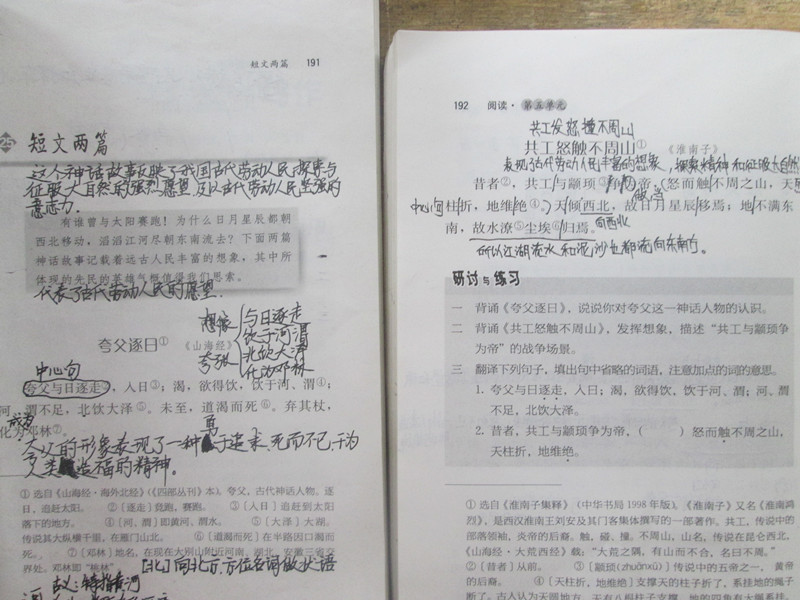 短文两篇 191
25 短文两篇
这个神话故事反映了我国古代劳动人民探索与
征服大自然的强烈愿望及以古代劳动人民坚强的
意志力.
有谁曾与太阳赛跑！为什么日月星辰都朝
西北移动，滔滔江河尽朝东南流去？下面两篇
神话故事记载着远古人民丰富的想象，其中所
体现的先民的英雄气概值得我们思索。
代表了古代劳动人民的愿望.
想像 与日逐走
饮于河渭
夸父逐日① 《山海经》
夸张 北饮大泽
化为邓林
中心句
夸父与日逐走②，入日③；渴，欲得饮，饮于河、渭④；
河、渭不足，北饮大泽⑤。未至，道渴而死⑥。弃其杖，
成为
化为邓林⑦。
夸父的形象表现了一种勇于追求,死而不已,于为
人类造福的精神.
① 选自《山海经·海外北经》（《四部丛刊》本）。夸父，古代神话人物。逐
日，追赶太阳。 ②〔逐走〕竞跑，赛跑。 ③〔入日〕追赶到太阳
落下的地方。 ④〔河、渭〕即黄河、渭水。 ⑤〔大泽〕大湖。
传说其大纵横千里，在雁门山北。 ⑥〔道渴而死〕在半路因口渴而
死。 ⑦〔邓林〕地名，在现在大别山附近河南、湖北、安徽三省交
界处。邓林即“桃林”
[北]向北方,方位名词做状语
古义:特指黄河
192 阅读·第五单元
共工发怒撞不周山
共工怒触不周山① 《淮南子》
表现了古代劳动人民丰富的想象，探索精神和征服大自然
昔者②，共工与颛顼③争为帝，怒而触不周之山，天
中心句 柱折，地维绝④。天倾西北，故日月星辰移焉；地不满东
向西北
南，故水潦⑤尘埃⑥归焉。
所以江湖流水和泥沙也都流向东南方。
研讨与练习
一 背诵《夸父逐日》，说说你对夸父这一神话人物的认识。
二 背诵《共工怒触不周山》，发挥想象，描述“共工与颛顼争
为帝”的战争场景。
三 翻译下列句子，填出句中省略的词语，注意加点的词的意思。
1. 夸父与日逐走，入日；渴，欲得饮，饮于河、渭；河、渭
不足，北饮大泽。
2. 昔者，共工与颛顼争为帝，（ ）怒而触不周之山，
天柱折，地维绝。
① 选自《淮南子集释》（中华书局1998年版）。《淮南子》又名《淮南鸿
烈》，是西汉淮南王刘安及其门客集体撰写的一部著作。共工，传说中的
部落领袖，炎帝的后裔。触，碰、撞。不周山，山名，传说在昆仑西北，
《山海经·大荒西经》载：“大荒之隅，有山而不合，名曰不周。”
②〔昔者〕从前。 ③〔颛顼（zhuānxū）〕传说中的五帝之一，黄帝
的后裔。 ④〔天柱折，地维绝〕支撑天的柱子折了，系挂地的绳子
断了。古人认为天圆地方，天有八根柱子支撑，地的四角有大绳系挂。